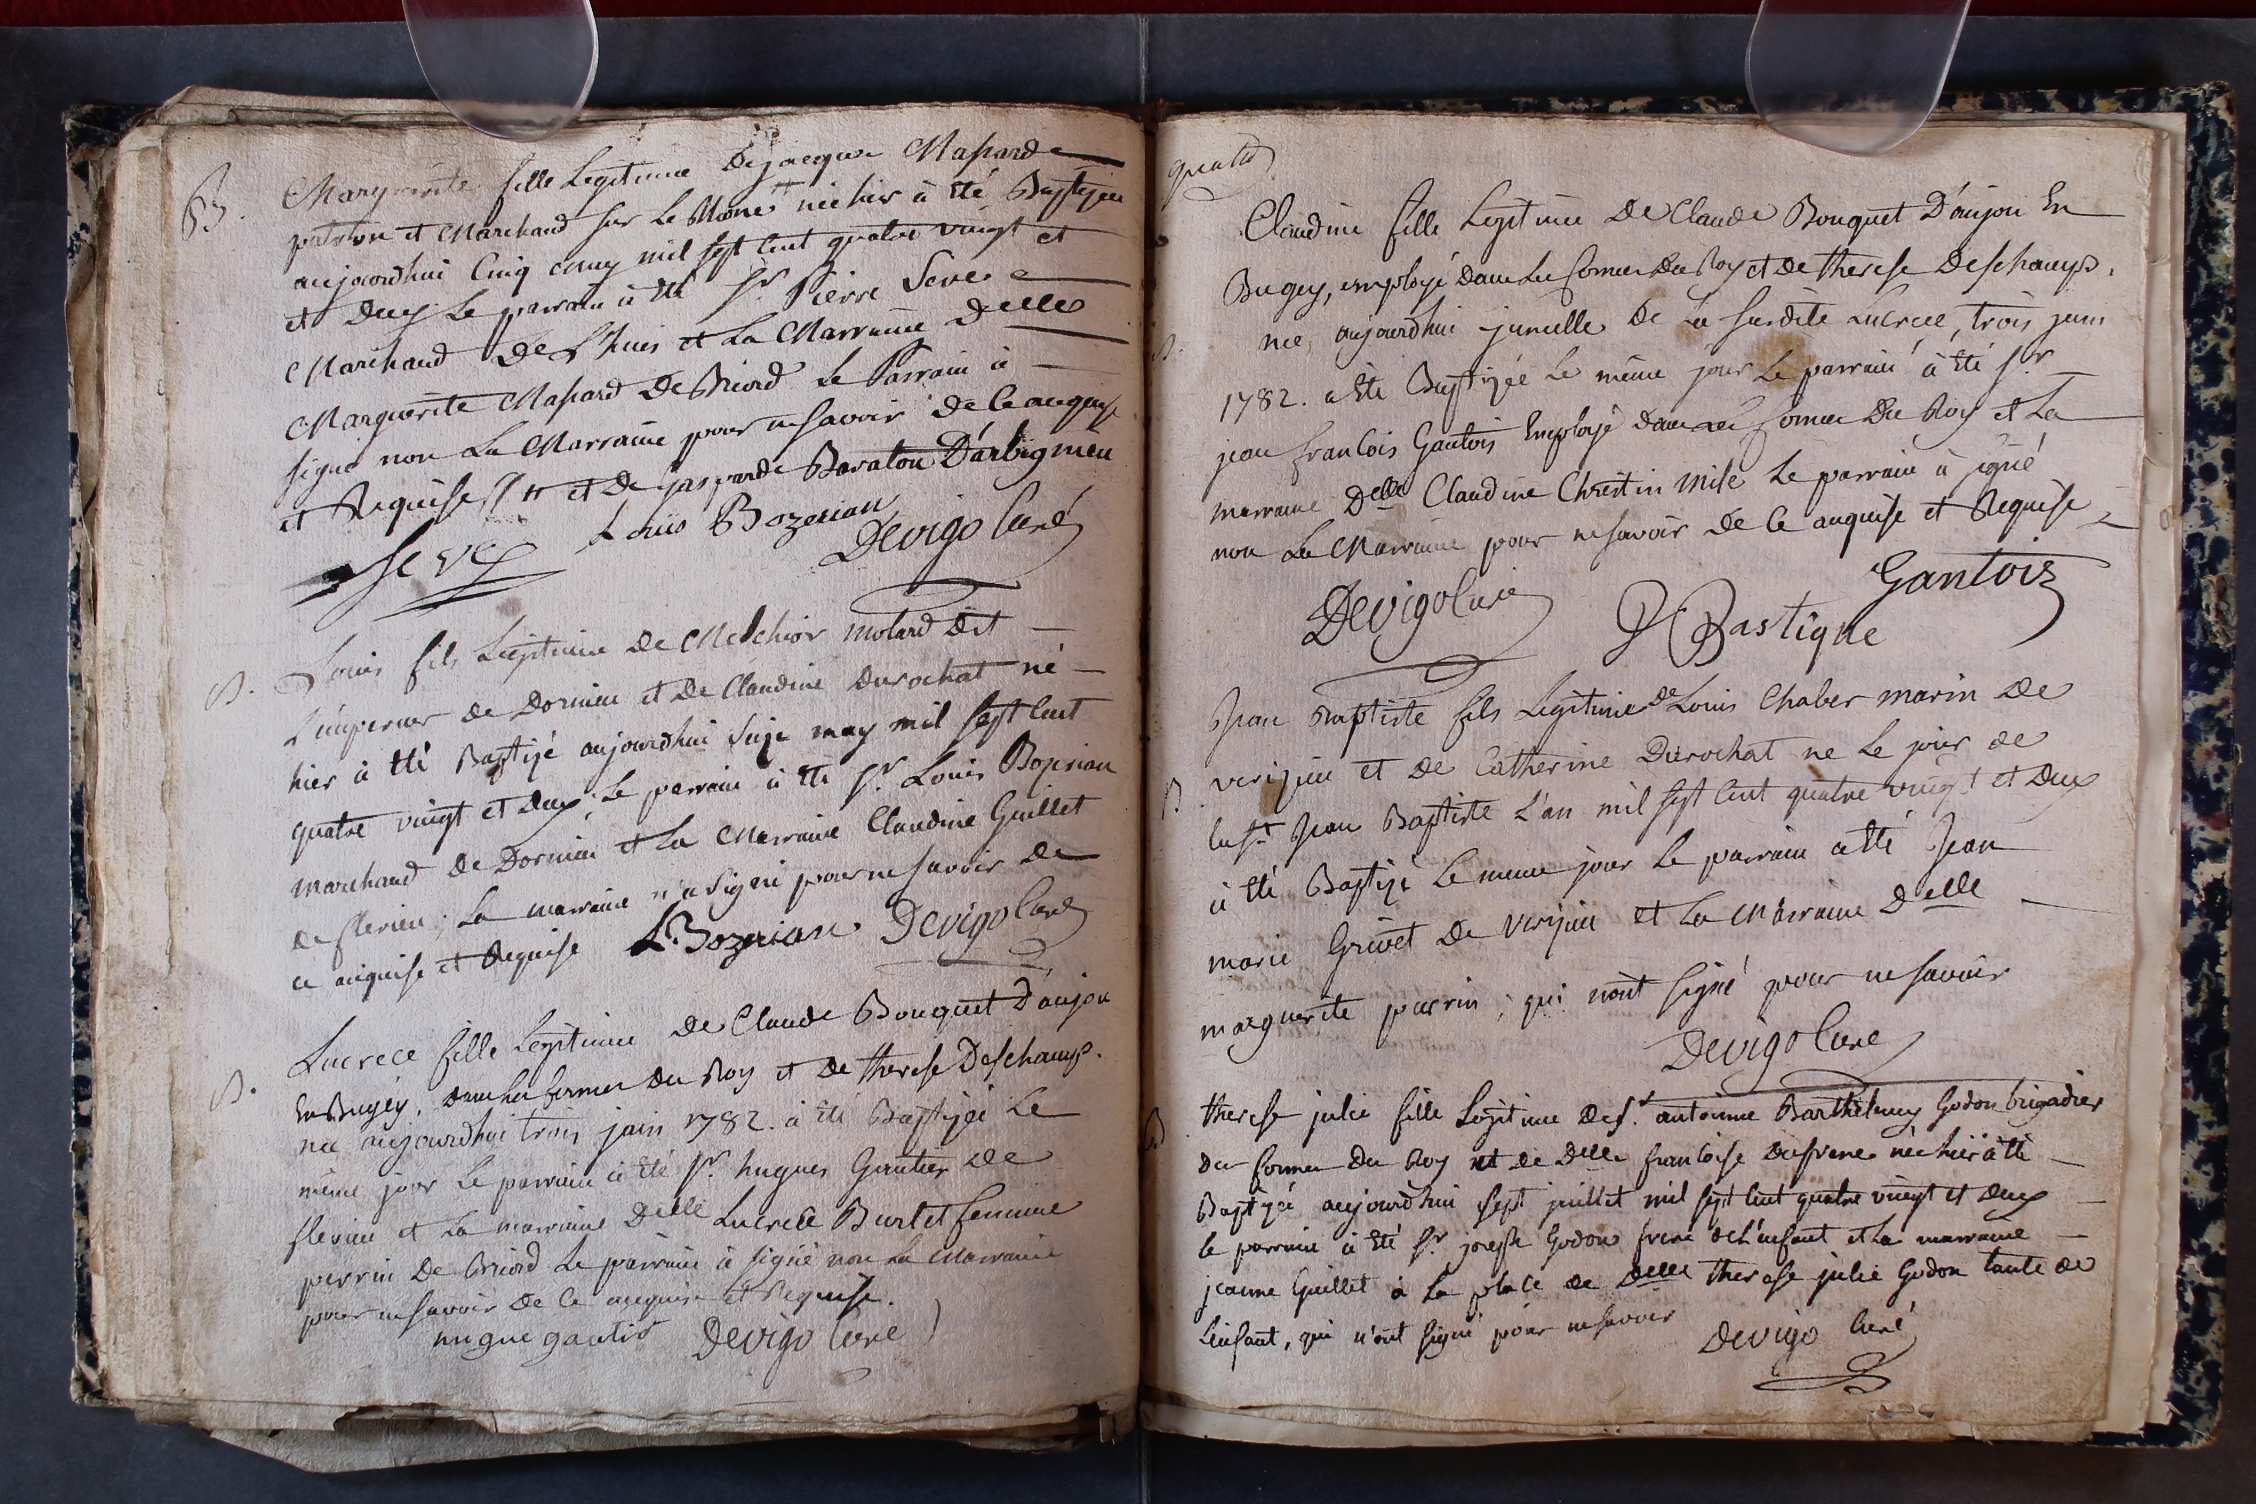 B.
Marguerite fille Legitime De jacque Massard
patron et Marchand sur Le Rhone # née hier à Eté Baptisée
aujourdhui Cinq may mil sept Cent quatre vingt et
et deux Le parrain à Eté Sr. Pierre Seve
Marchand De L'huis et La Marraine Delle
Marguerite Massard De Briord Le Parrain à
signé non La Marraine pour ne savoir de Ce enquise
et Requise // # et De gasparde Baraton D'arbignieu
Seve Louis Bozerian Devigo Curé
B. Louis fils Legitime de Melchior molard dit
L'empereur de Dornieu et de Claudine Durochat né
hier à été Baptizé aujourdhui seize may mil sept Cent
quatre vingt et deux; Le parrain à été Sr. Louis Bozerian
marchand de Dornieu et La Marraine Claudine Guillet
de flerieu; La marraine n'a signé pour ne savoir de
ce enquise et Requise L. Bozerian Devigo Curé
B. Lucrece fille Legitime de Claude Bouquet D'anjou
En Bugey, dans les fermes du Roy et de therese Deschamps.
née aujourdhui trois juin 1782. à été Baptizée le
même jour Le parrain à été Sr. hugues Gautier de
flerieu et La marraine Delle Lucrece Burlet femme
perrin De Briord Le parrain à signé non La Marraine
pour ne savoir de Ce enquise et Requise.
hugue gautie Devigo Curé
quatre
B. Claudine fille Legitime De Claude Bouquet D'anjou En
Bugey, employé dans les fermes du Roy et de therese Deschamps,
née aujourdhui jumelle De La susdite Lucrece, trois juin
1782. a été Baptizée Le même jour Le parrain à été Sr
jean francois Gantois Employé dans les fermes du Roy et La
marraine Delle Claudine Chrestin Mise Le parrain à signé
non La Marraine pour ne savoir de Ce enquise et Requise
Devigo Curé P Bastique Gantois
B Jean Baptiste fils Legitime de Louis Chaber marin de
verizieu et de Catherine Durochat né Le jour de
la St. Jean Baptiste L'an mil sept Cent quatre vingt et deux
à été Baptizé Le meme jour Le parrain a été Jean
marie Grivet de verizieu et La Marraine Delle
marguerite perrin; qui n'ont signé pour ne savoir
Devigo Curé
B therese julie fille Legitime de Sr. antoinne Barthelemy Godon brigadier
des fermes du Roy et de Delle francoise Dufrene née hier à été
Baptizée aujourdhui sept juillet mil sept Cent quatre vingt et deux
le parrain à été Sr. joseph Godon frere de L'enfant et La marraine
jeanne Guillet à La place de Delle therese julie Godon tante de
L'enfant, qui n'ont signé pour ne savoir Devigo Curé